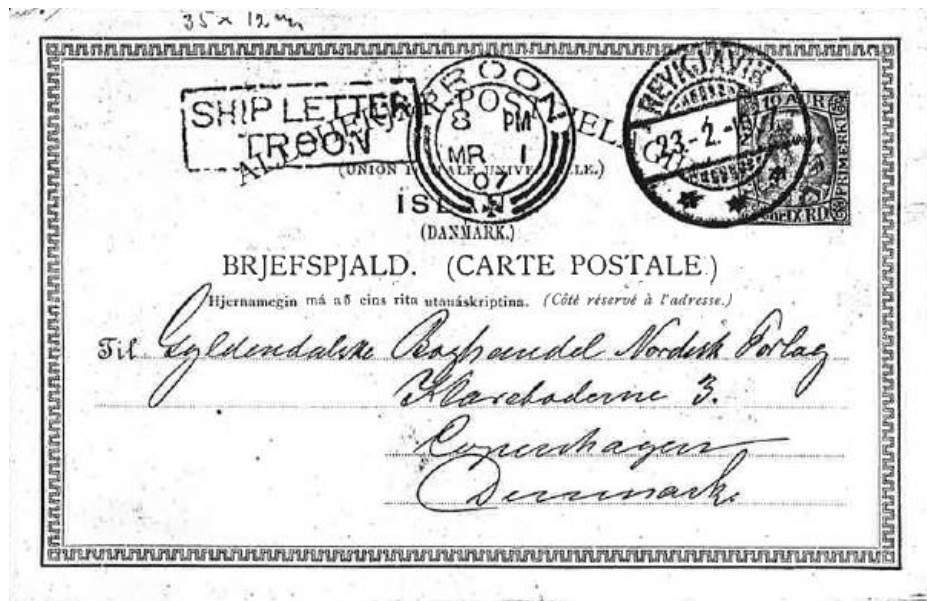 35 x 12 m/m
SHIP LETTER
TROON
TROON
8 PM
MR 1
07
REYKJAVIK
23.-2.-
10 AUR
FRIMERKI
(UNION POSTALE UNIVERSELLE.)
ÍSLAND
(DANMARK.)
BRJEFSPJALD. (CARTE POSTALE.)
Hjernamegin má að eins rita utanáskriptina. (Côté réservé à l'adresse.)
Til Gyldendalske Boghandel Nordisk Forlag
Klareboderne 3.
Copenhagen
Denmark.